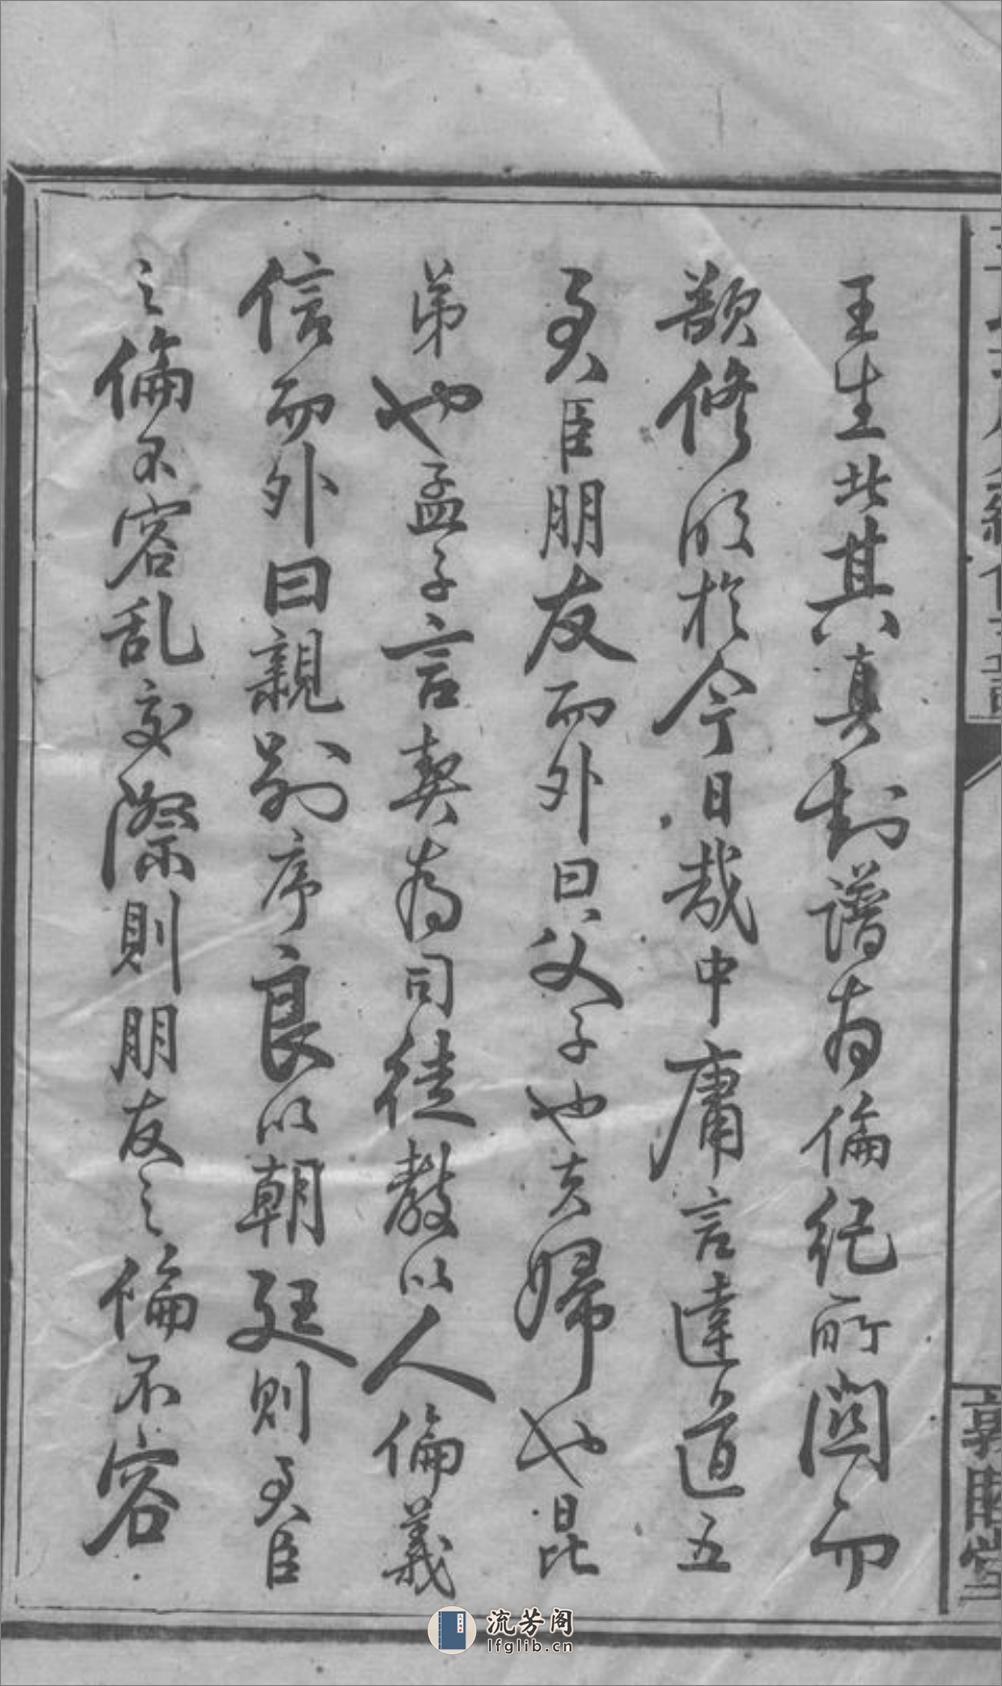 王生此其真知譜為倫紀所關而
歆修明於今日哉中庸言達道五
君臣朋友而外曰父子也夫婦也昆
弟也孟子言契為司徒教以人倫義
信而外曰親別序良以朝廷則君臣
之倫不容亂交際則朋友之倫不容
敦睦堂
流芳阁
lfglib.cn